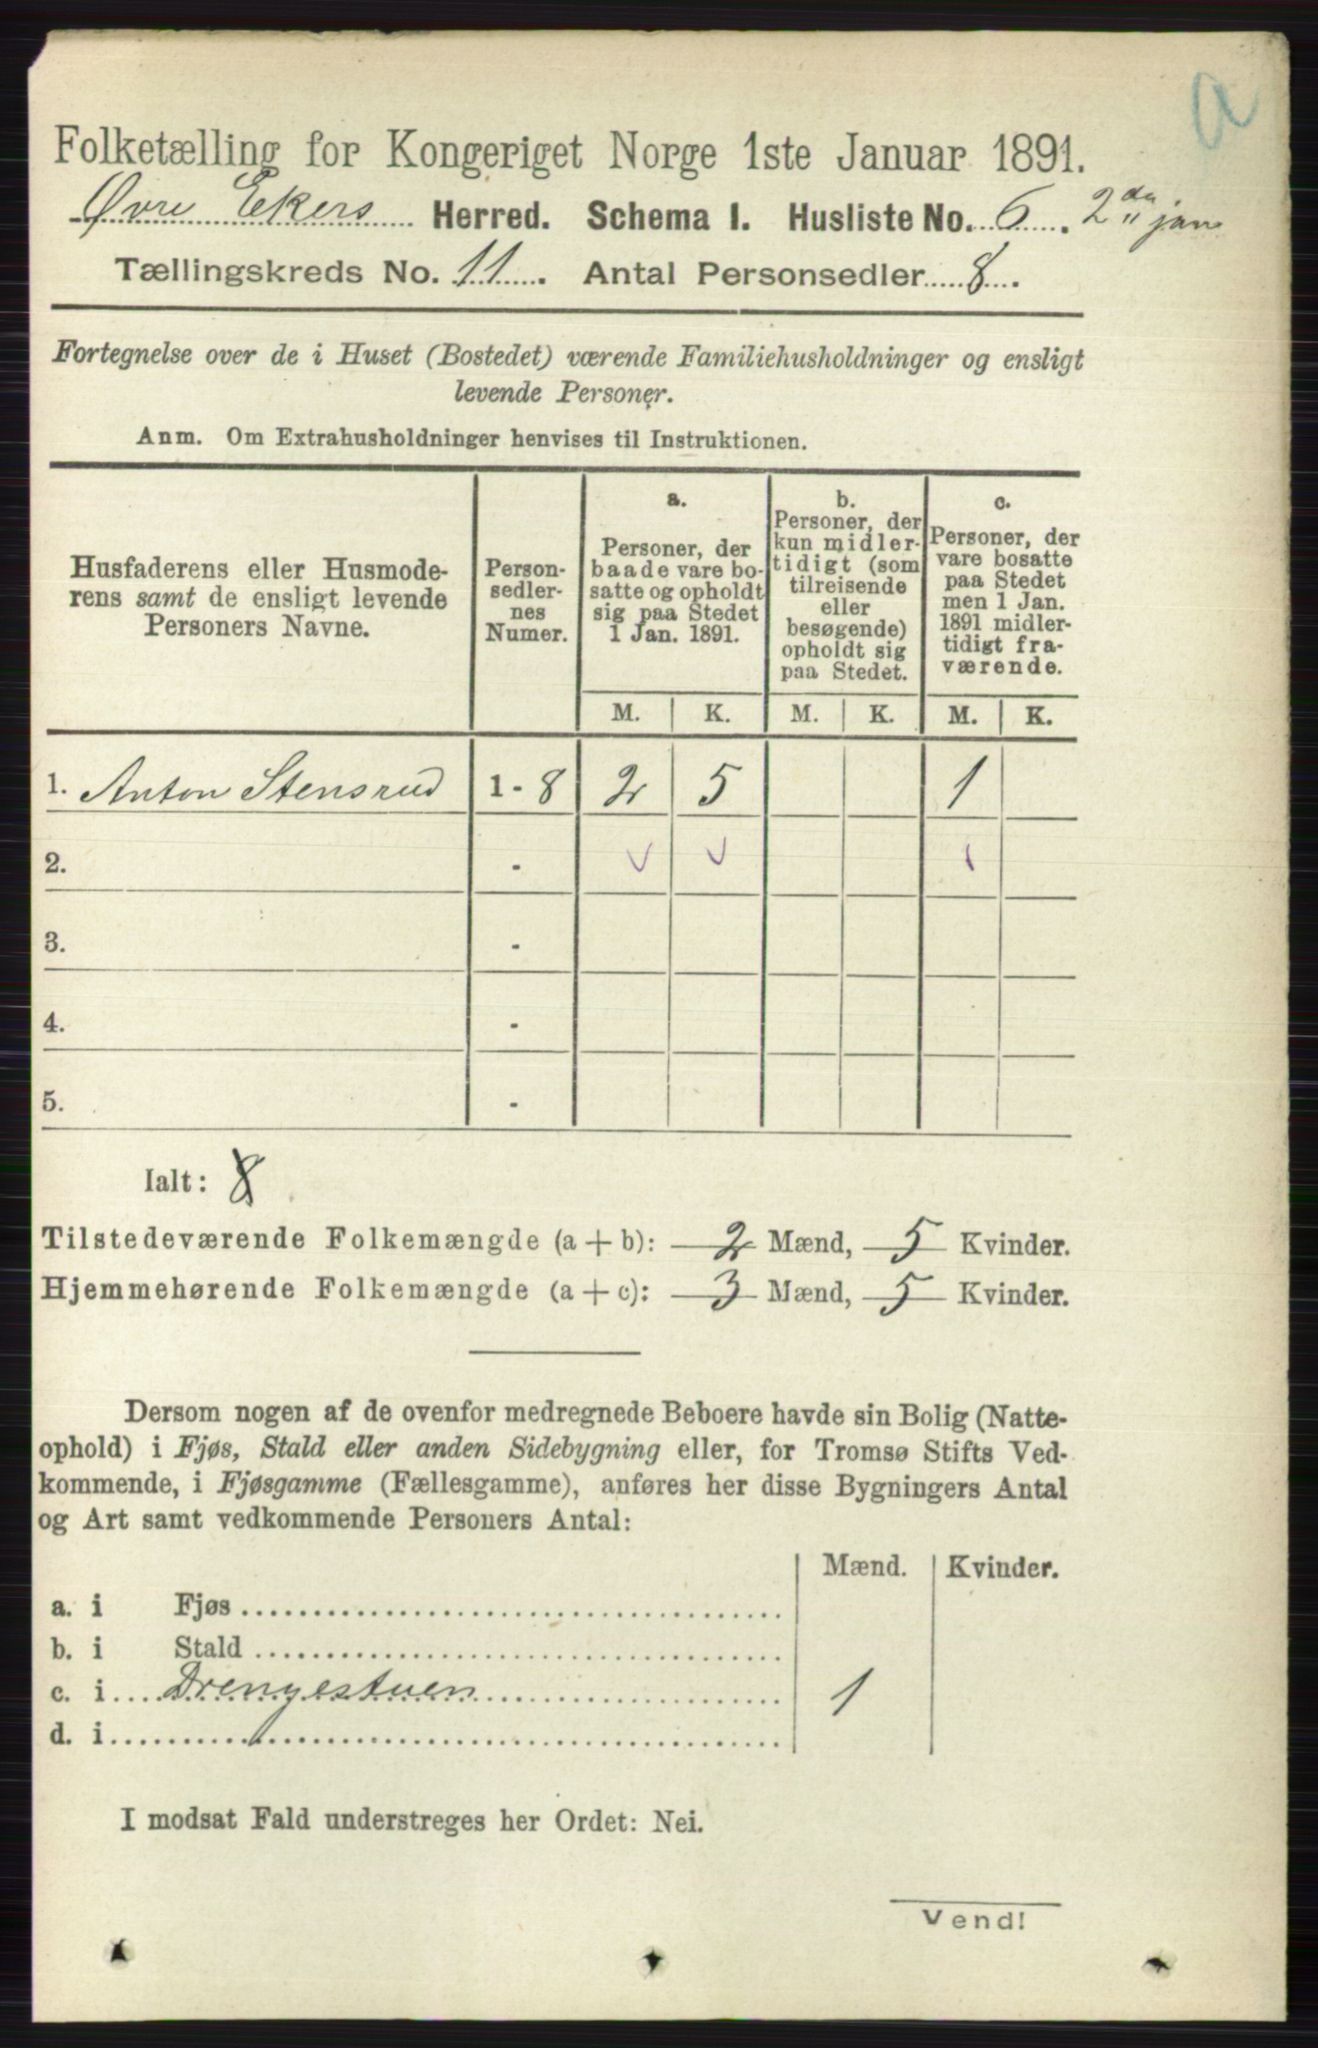 a
Folketælling for Kongeriget Norge 1ste Januar 1891.
Øvre Ekers Herred. Schema I. Husliste No. 6. 2den jan
Tællingskreds No. 11. Antal Personsedler 8.
Fortegnelse over de i Huset (Bostedet) værende Familiehusholdninger og ensligt
levende Personer.
Anm. Om Extrahusholdninger henvises til Instruktionen.
Husfaderens eller Husmode-
rens samt de ensligt levende
Personers Navne.
Person-
sedler-
nes
Numer.
a.
Personer, der
baade vare bo-
satte og opholdt
sig paa Stedet
1 Jan. 1891.
b.
Personer, der
kun midler-
tidigt (som
tilreisende
eller
besøgende)
opholdt sig
paa Stedet.
c.
Personer, der
vare bosatte
paa Stedet
men 1 Jan.
1891 midler-
tidigt fra-
værende.
M. K. M. K. M. K.
1. Anton Stensrud 1 - 8 2 5 1
2. -
3. -
4. -
5. -
Ialt: 8
Tilstedeværende Folkemængde (a + b): 2 Mænd, 5 Kvinder.
Hjemmehørende Folkemængde (a + c): 3 Mænd, 5 Kvinder.
Dersom nogen af de ovenfor medregnede Beboere havde sin Bolig (Natte-
ophold) i Fjøs, Stald eller anden Sidebygning eller, for Tromsø Stifts Ved-
kommende, i Fjøsgamme (Fællesgamme), anføres her disse Bygningers Antal
og Art samt vedkommende Personers Antal:
Mænd. Kvinder.
a. i Fjøs
b. i Stald
c. i Drengestuen 1
d. i
I modsat Fald understreges her Ordet: Nei.
Vend!